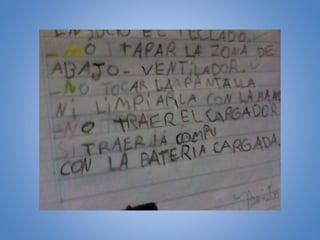 EL TECLADO.
-NO TAPAR LA ZONA DE
ABAJO - VENTILADOR.
-NO TOCAR LA PANTALLA
NI LIMPIARLA CON LA MANO
-NO TRAER EL CARGADOR
SI TRAER LA COMPU
CON LA BATERIA CARGADA.